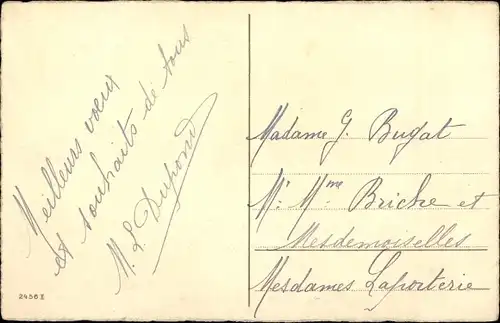 Meilleurs vœux
et souhaits de tous
M. L. Dupond
Madame G. Bugat
Mr Mme Briche et
Mesdemoiselles
Mesdames Laporterie
2456 E